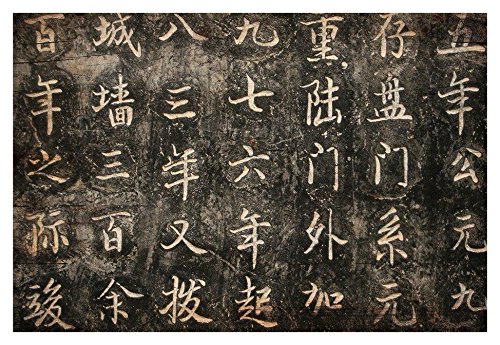 五年公元九
存盘门系元
重，陆门外加
九七六年起
八三年又拨
城墙三百余
百年之际竣